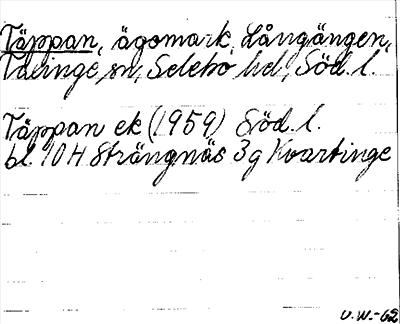 Täppan, ägomark, Långängen,
Taxinge sn, Selebo hd, Söd. l.
Täppan ek (1959) Söd. l.
bl. 10 H Strängnäs 3g Kvartinge
U.W.-62